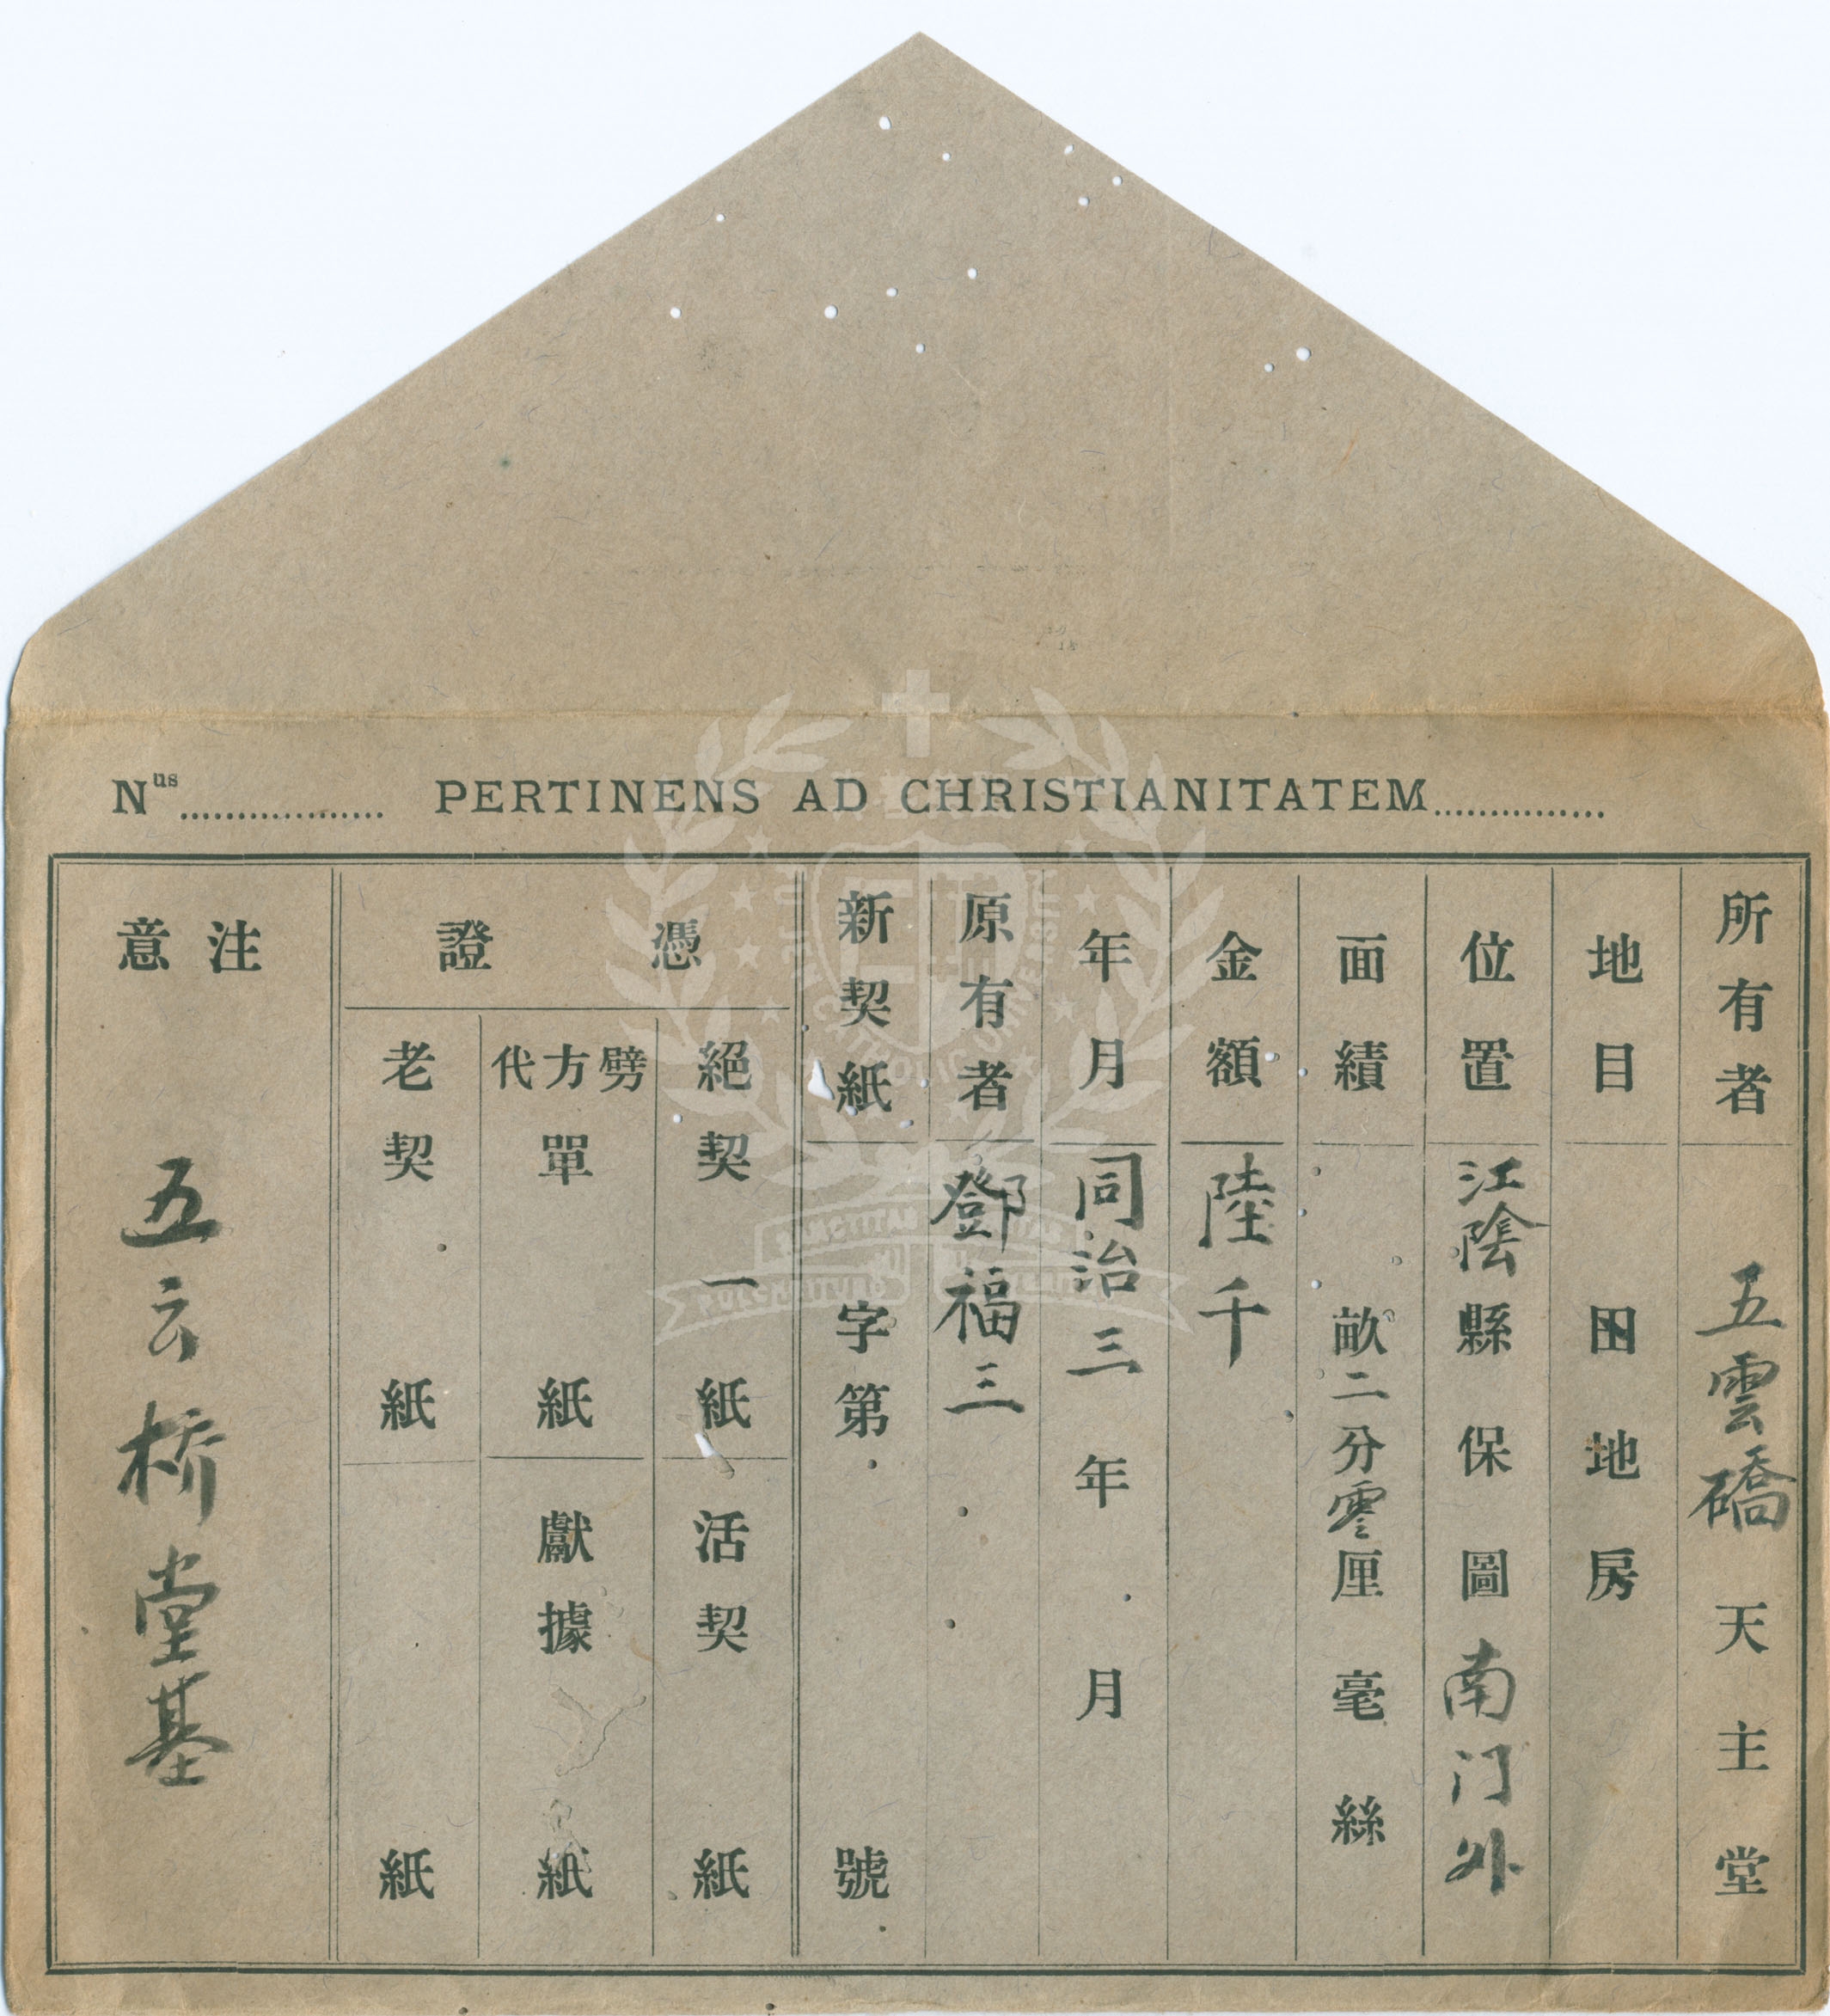 Nus PERTINENS AD CHRISTIANITATEM
所有者 五雲礄天主堂
地目 田地房
位置 江陰縣保圖南门外
面績 畝二分零厘毫絲
金額 陸千
年月 同治三年月
原有者 鄧福三
新契紙 字第號
憑證
絕契一紙 活契紙
劈方代單紙 獻據紙
老契紙 紙
注意
五云桥堂基